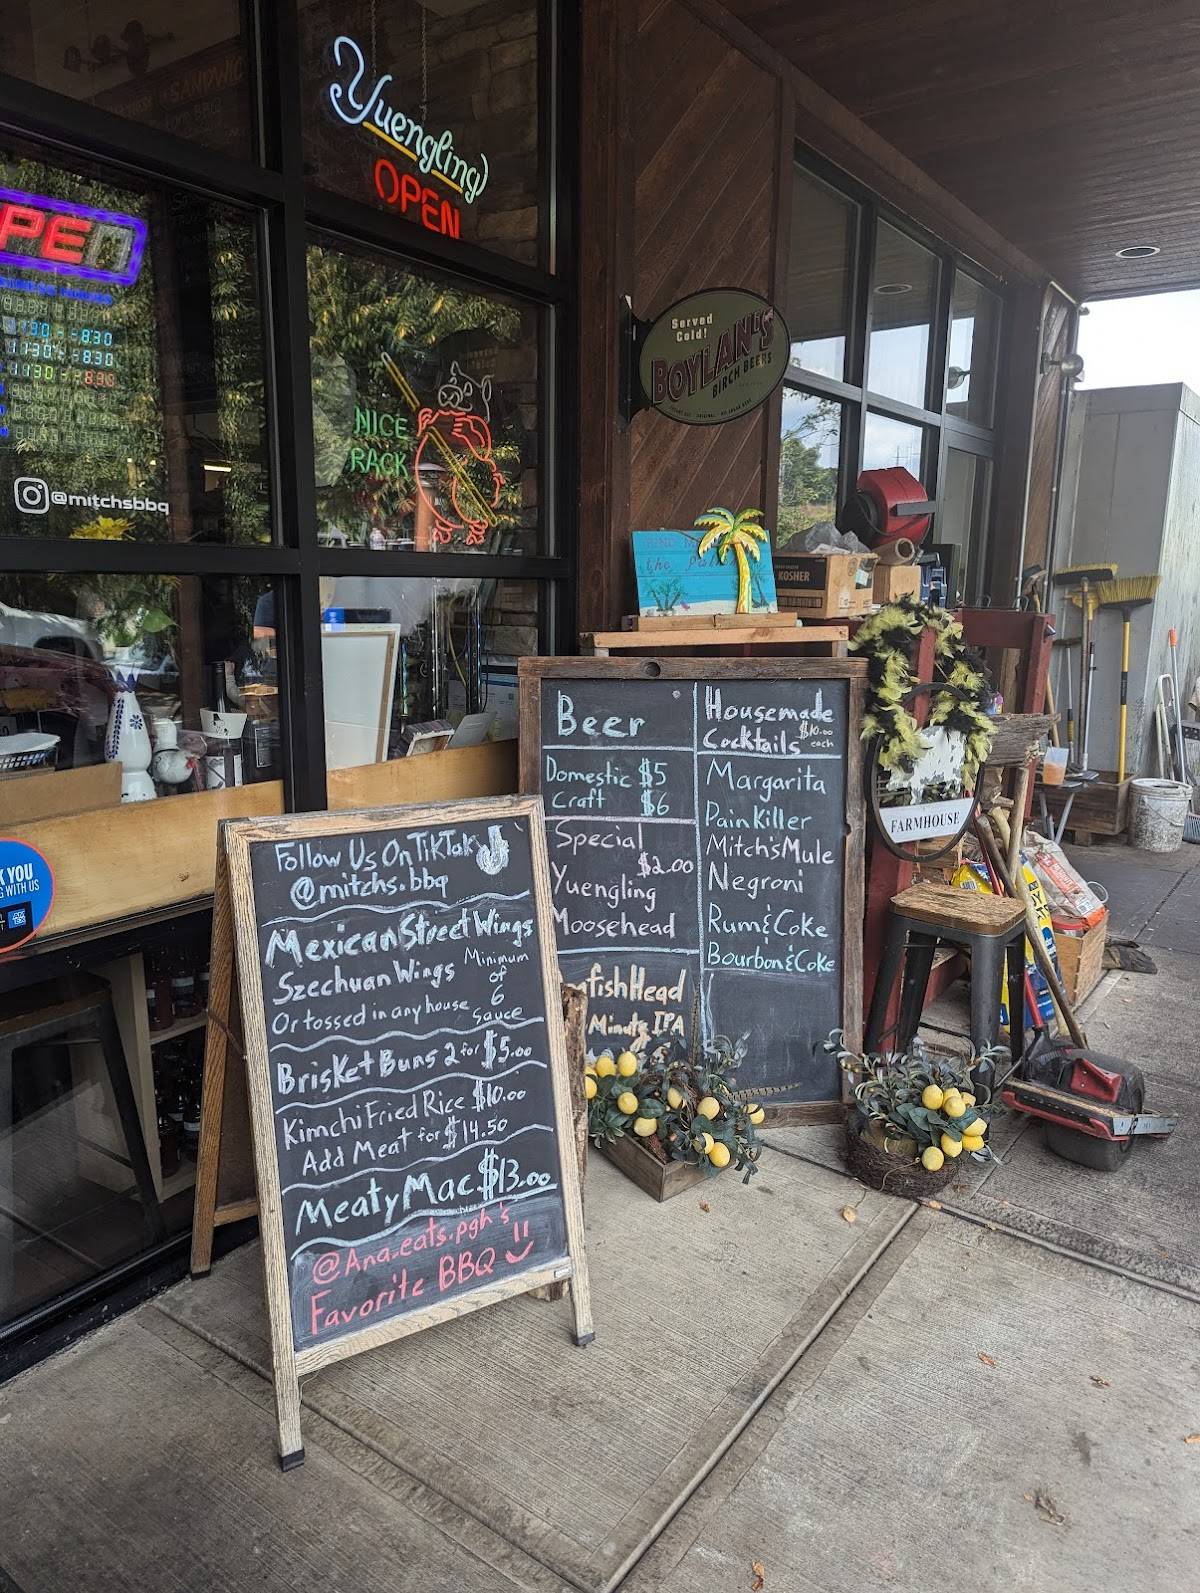 Yuengling
OPEN
OPEN
BUSINESS HOURS
1130 - 830
1130 - 830
1130 - 830
NICE
RACK
@mitchsbbq
Served
Cold!
BOYLAN'S
BIRCH BEERS
KOSHER
the Palm
FARMHOUSE
Beer
Domestic $5
Craft $6
Special
$2.00
Yuengling
Moosehead
fishHead
Minute IPA
Housemade
Cocktails $10.00
each
Margarita
Pain Killer
Mitch's Mule
Negroni
Rum & Coke
Bourbon & Coke
Follow Us On TikTok
@mitchs.bbq
Mexican Street Wings
Szechuan Wings
Or tossed in any house sauce
Minimum
of
6
Brisket Buns 2 for $5.00
Kimchi Fried Rice $10.00
Add Meat for $14.50
Meaty Mac $13.00
@Ana.eats.pgh's
Favorite BBQ
K YOU
G WITH US